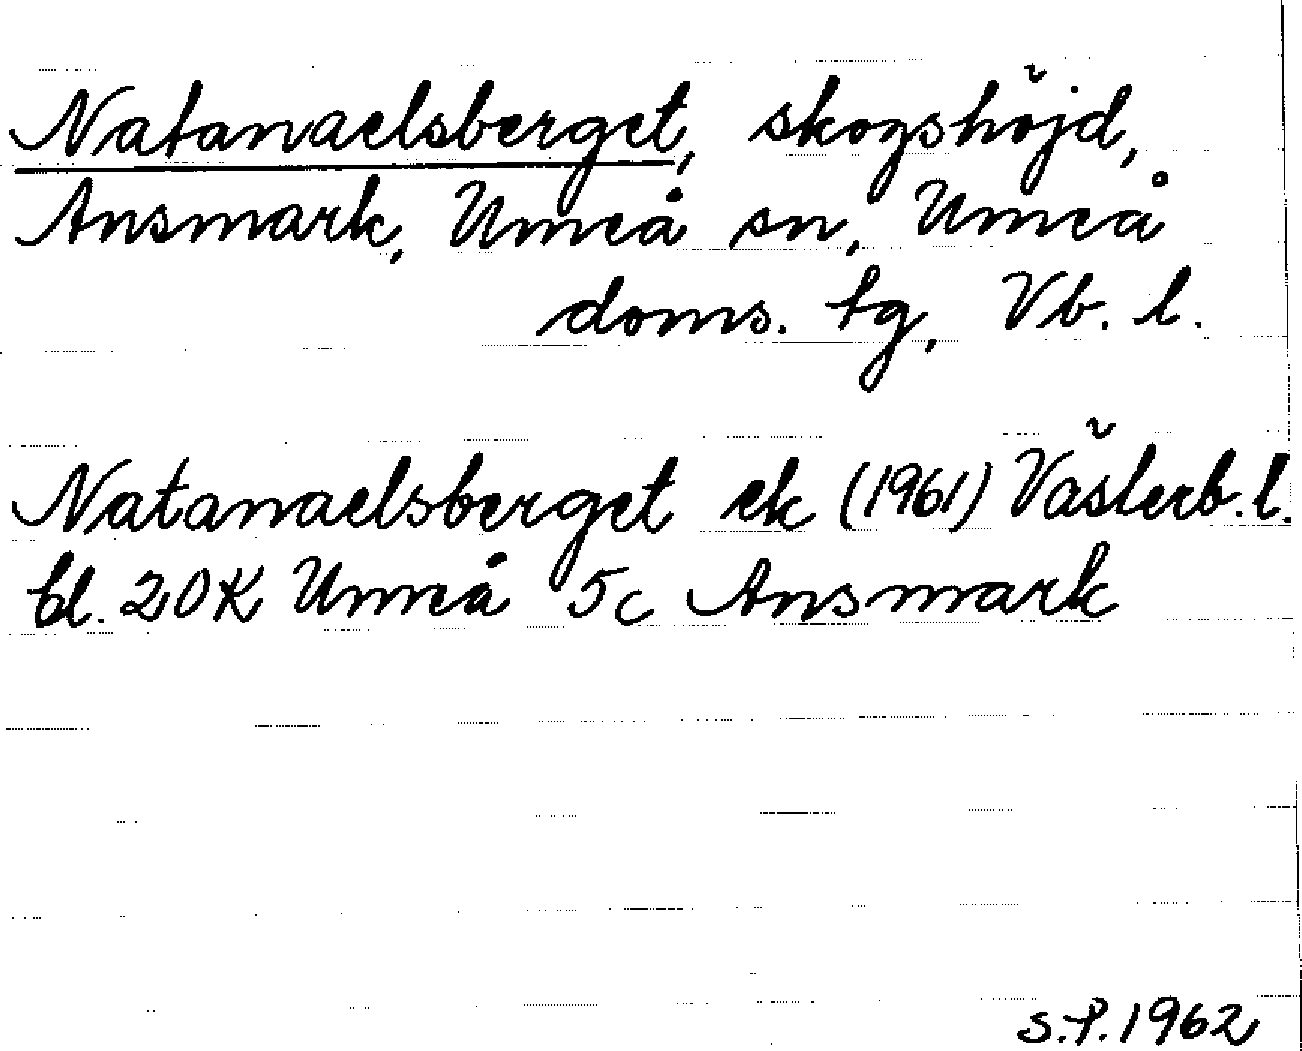 Natanaelsberget, skogshöjd,
Ansmark, Umeå sn, Umeå
doms. tg, Vb. l.
Natanaelsberget ek (1961) Västerb. l.
bl. 20K Umeå 5c Ansmark
S.P. 1962